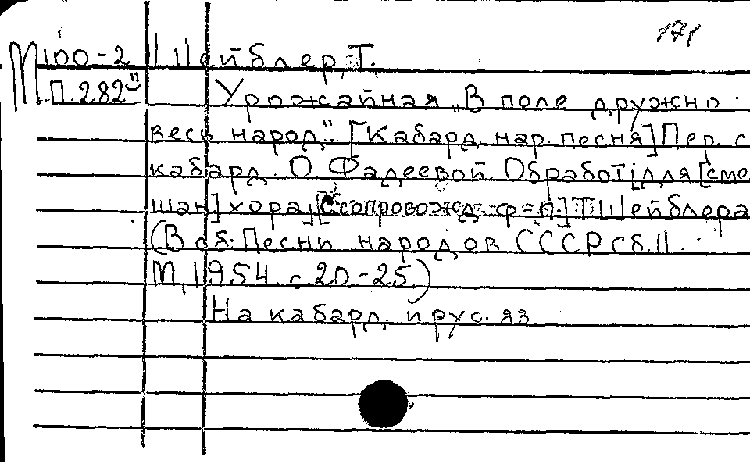 171
М100-2 Шейблер, Т.
М.П.282" Урожайная „В поле дружно
весь народ". [Кабард. нар. песня] Пер. с
кабард. О. Фадеевой. Обработ. для [сме
шан] хора [с сопровожд. ф-п.] Т. Шейблера
(В сб. Песни народов СССР сб. II
М, 1954 с 20-25)
На кабард. и рус. яз